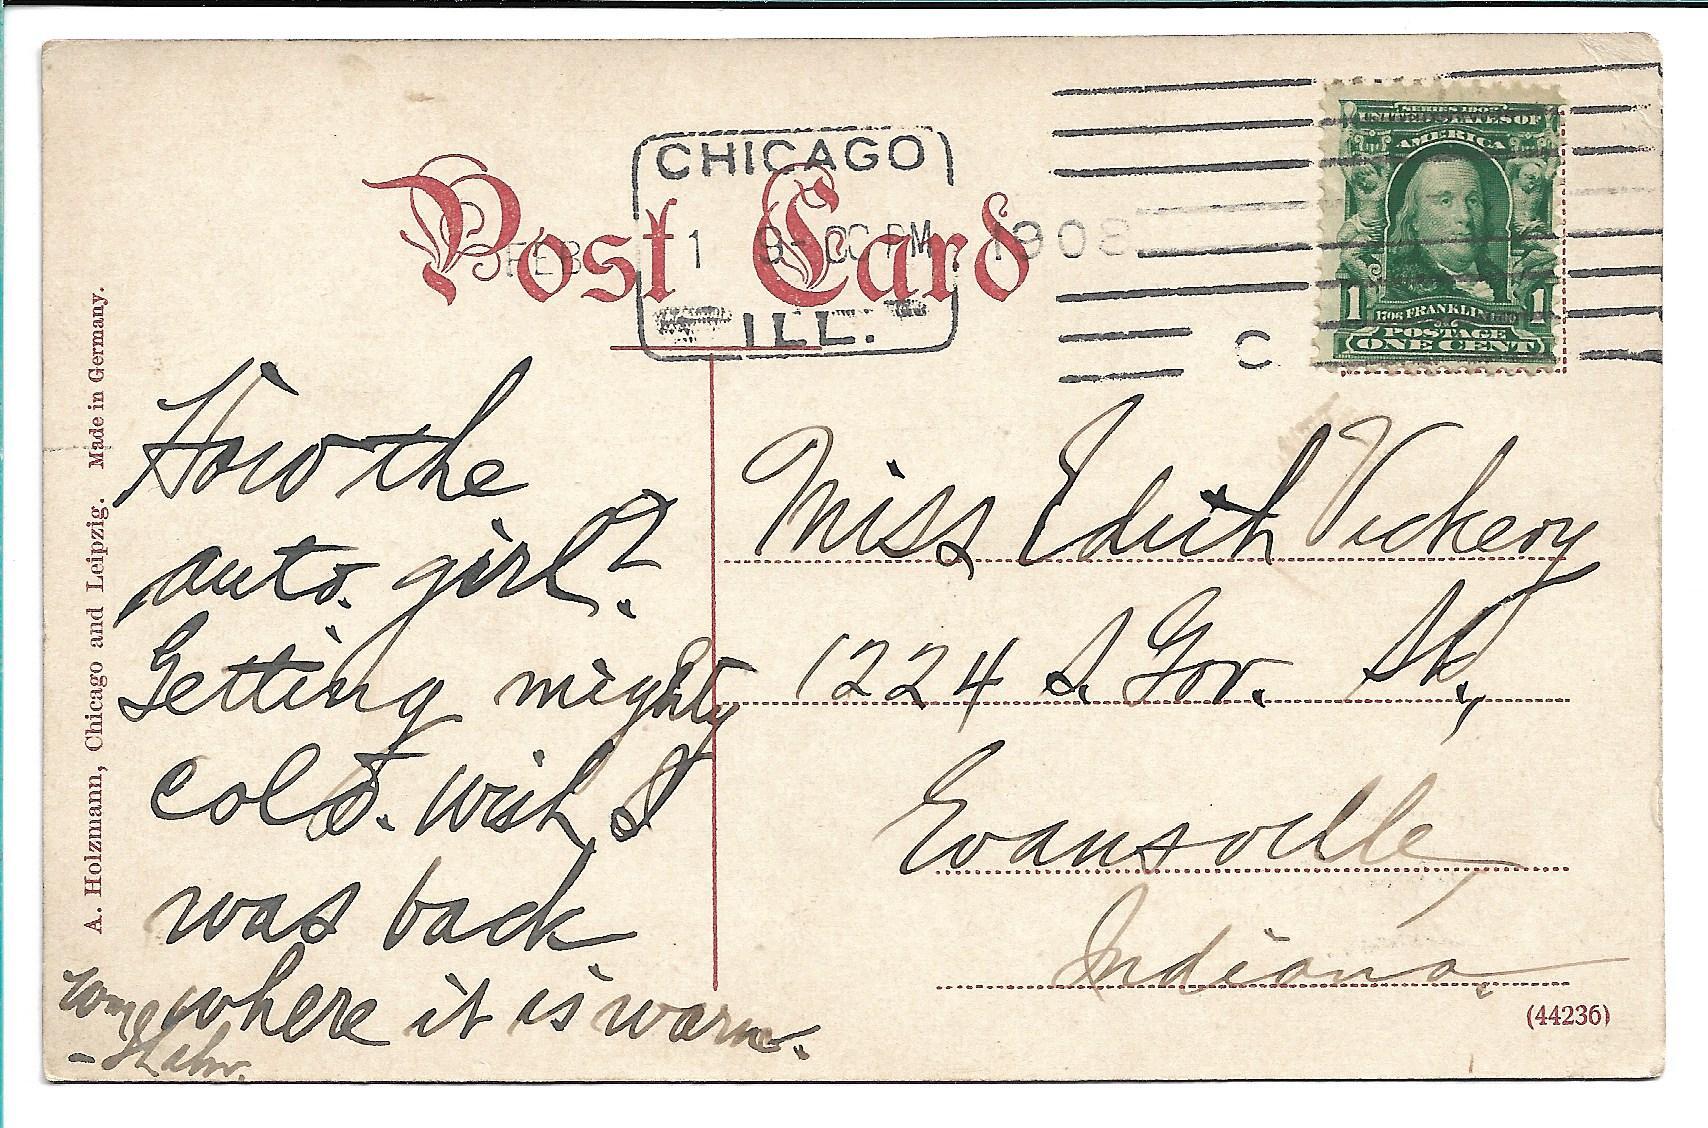 Post Card
CHICAGO
FEB 1 9-00 PM 1908
ILL.
C
SERIES 1902
UNITED STATES OF
AMERICA
1706 FRANKLIN 1790
POSTAGE
1 ONE CENT 1
A. Holzmann, Chicago and Leipzig. Made in Germany.
How the
auto. girl?
Getting mighty
cold. Wish I
was back
where it is warm.
Miss Edith Vickery
1224 S. Gov. St.,
Evansville,
Indiana.
(44236)